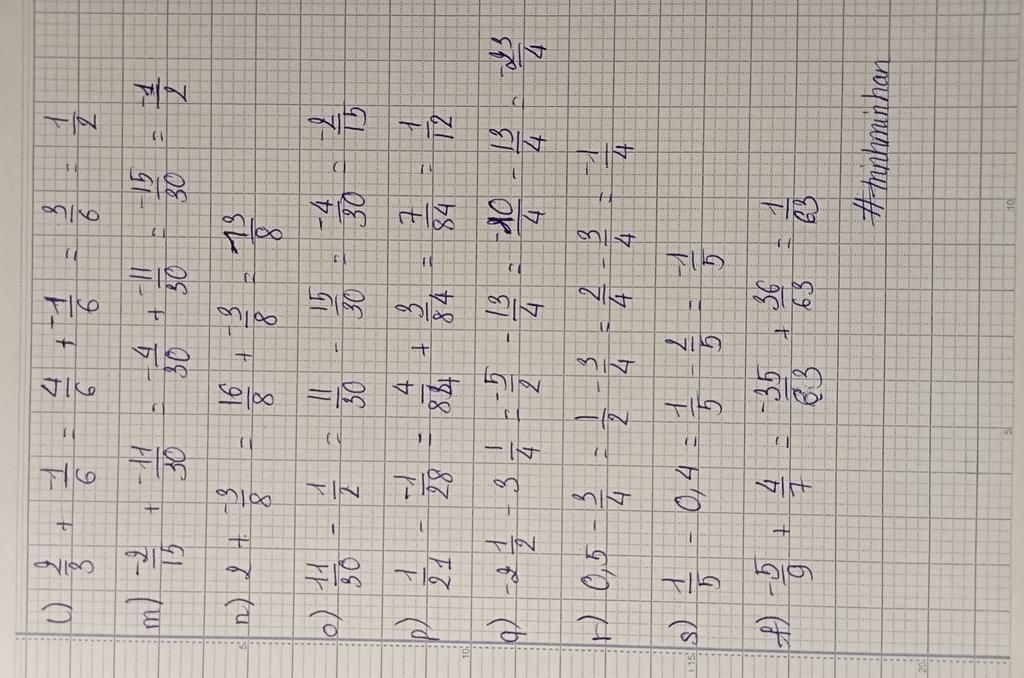 l) 2/3 + -1/6 = 4/6 + -1/6 = 3/6 = 1/2
m) -2/15 + -11/30 = -4/30 + -11/30 = -15/30 = -1/2
n) 2 + -3/8 = 16/8 + -3/8 = 13/8
o) 11/30 - 1/2 = 11/30 - 15/30 = -4/30 = -2/15
p) 1/21 - -1/28 = 4/84 + 3/84 = 7/84 = 1/12
q) -2 1/2 - 3 1/4 = -5/2 - 13/4 = -10/4 - 13/4 = -23/4
r) 0,5 - 3/4 = 1/2 - 3/4 = 2/4 - 3/4 = -1/4
s) 1/5 - 0,4 = 1/5 - 2/5 = -1/5
f) -5/9 + 4/7 = -35/63 + 36/63 = 1/63
#minhminhan
5
10
15
20
5
10